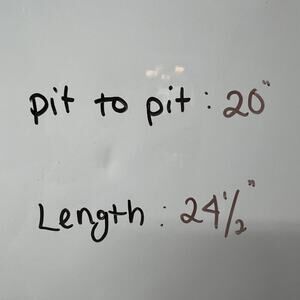 pit to pit : 20"
Length : 24 1/2"